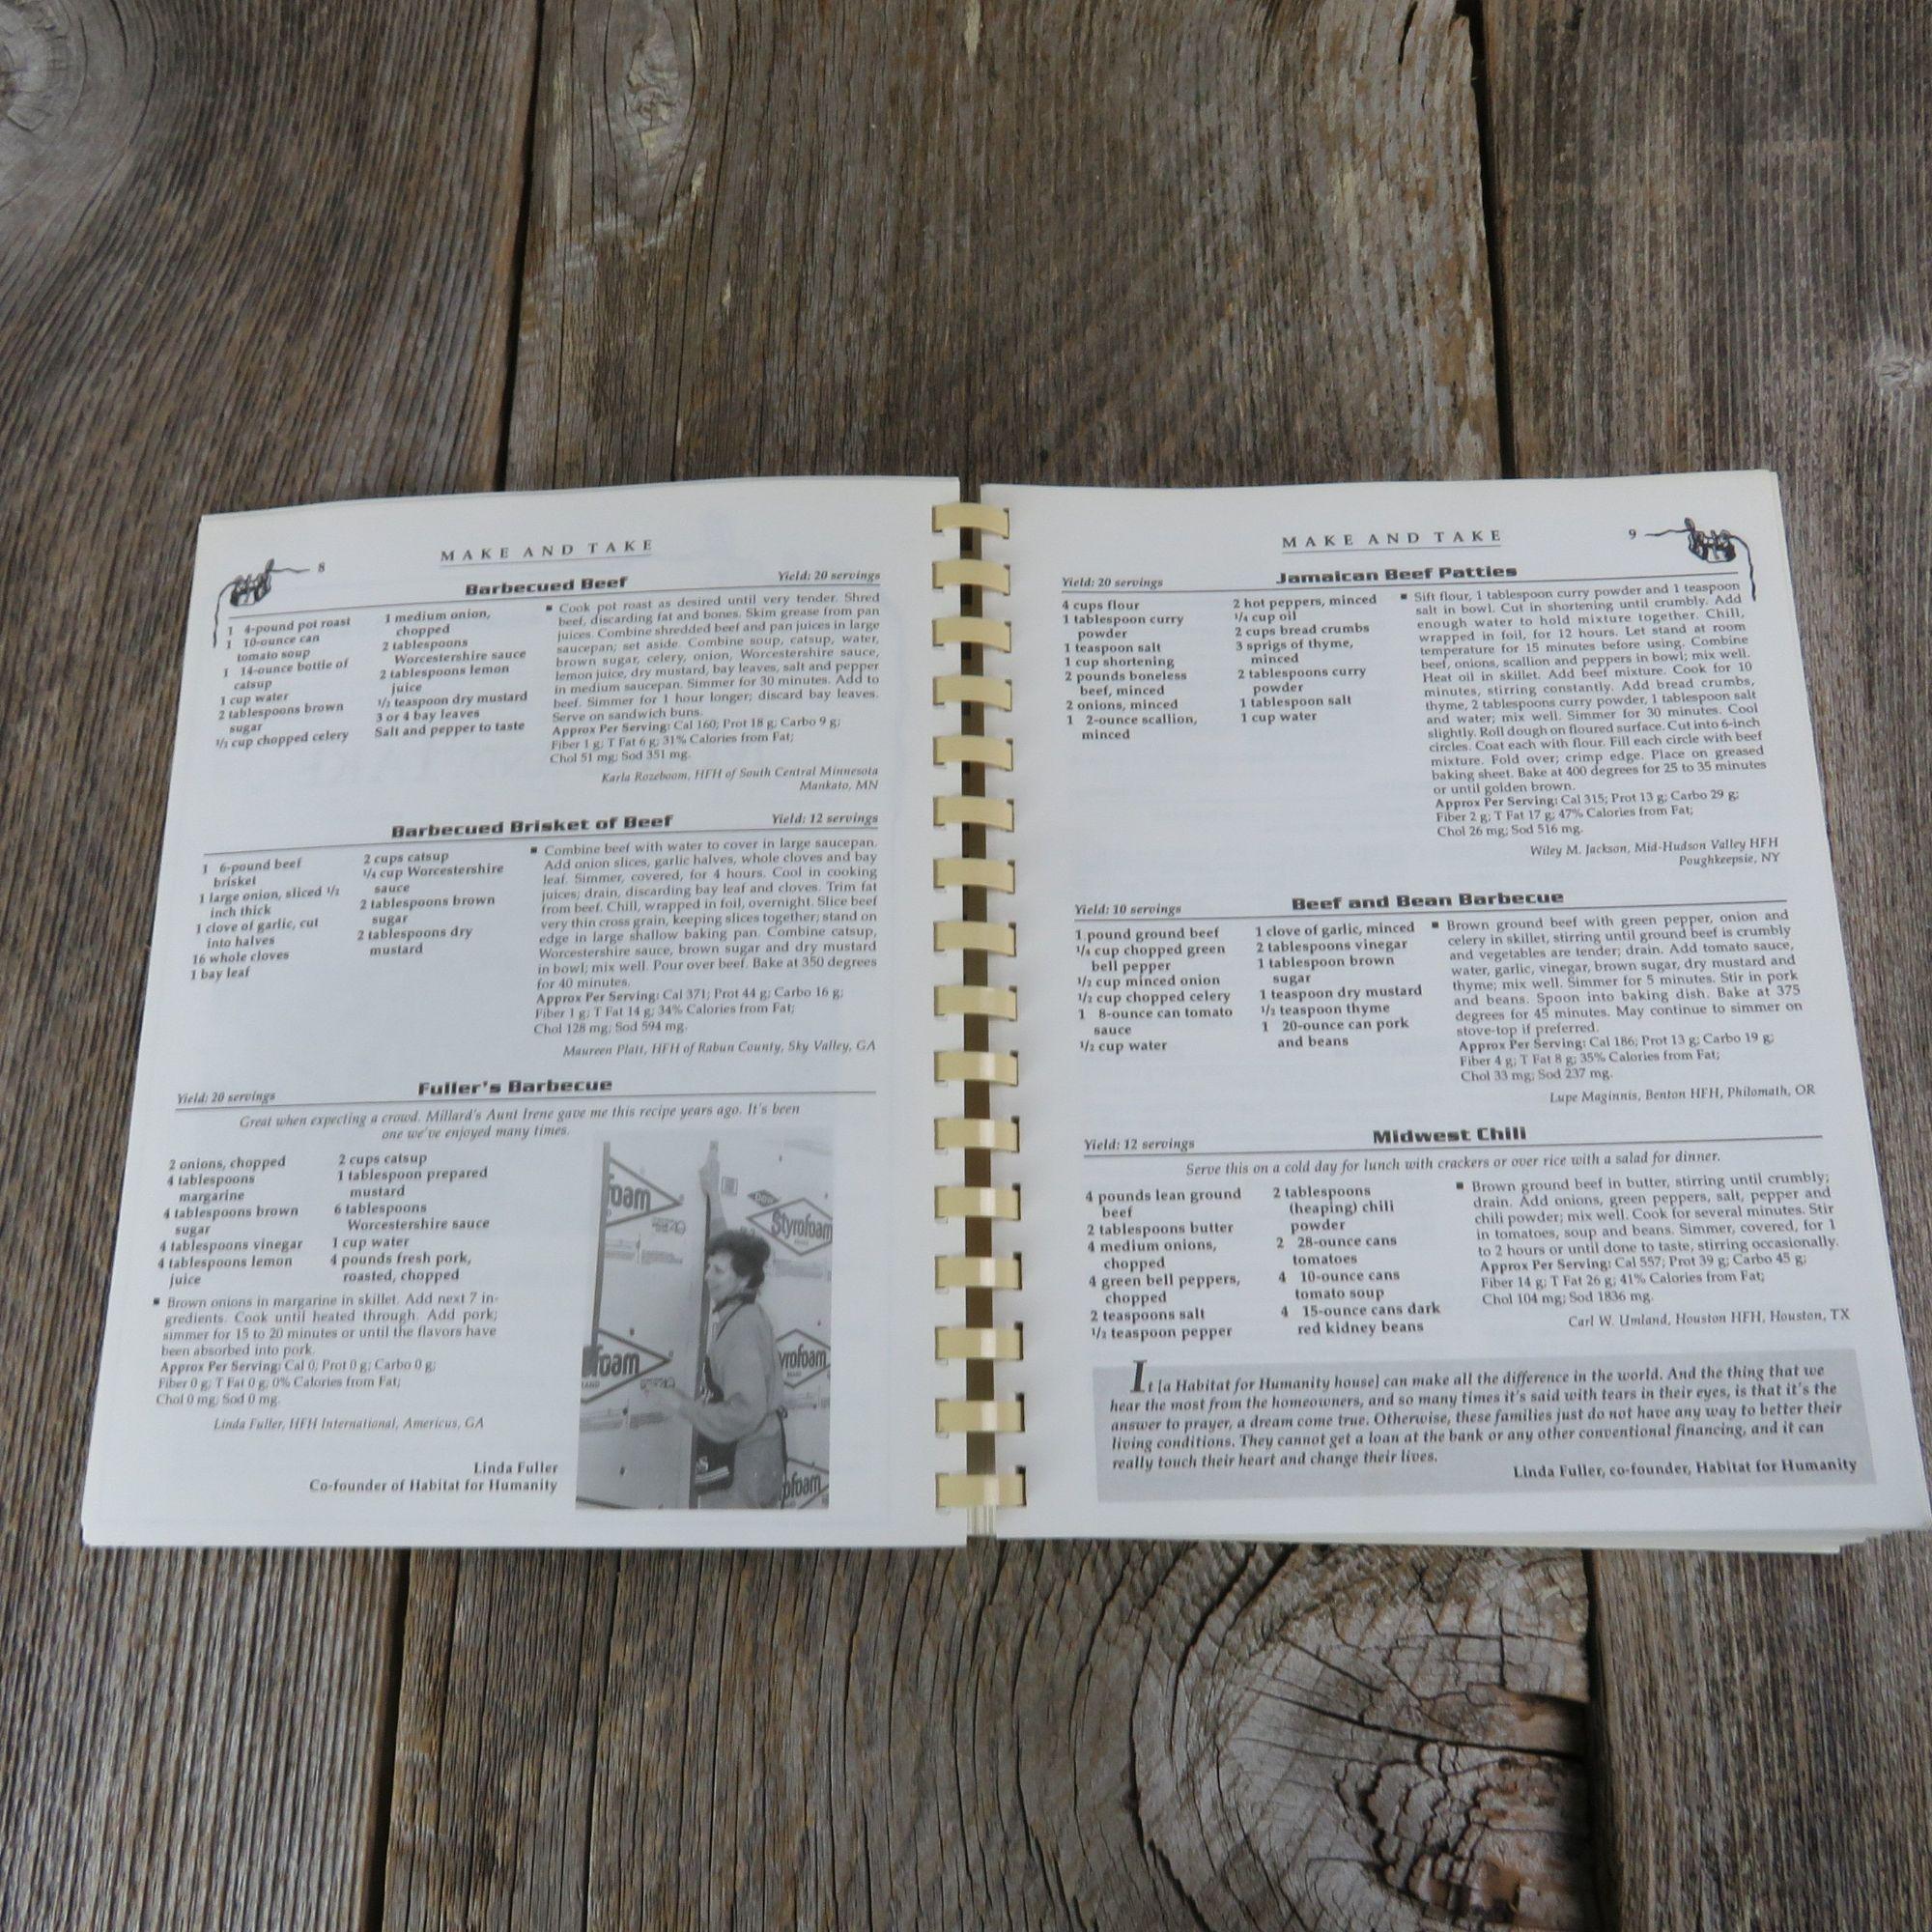 8
MAKE AND TAKE
Barbecued Beef
Yield: 20 servings
1 4-pound pot roast
1 10-ounce can
tomato soup
1 14-ounce bottle of
catsup
1 cup water
2 tablespoons brown
sugar
1/2 cup chopped celery
1 medium onion,
chopped
2 tablespoons
Worcestershire sauce
2 tablespoons lemon
juice
1/2 teaspoon dry mustard
3 or 4 bay leaves
Salt and pepper to taste
■ Cook pot roast as desired until very tender. Shred
beef, discarding fat and bones. Skim grease from pan
juices. Combine shredded beef and pan juices in large
saucepan; set aside. Combine soup, catsup, water,
brown sugar, celery, onion, Worcestershire sauce,
lemon juice, dry mustard, bay leaves, salt and pepper
in medium saucepan. Simmer for 30 minutes. Add to
beef. Simmer for 1 hour longer; discard bay leaves.
Serve on sandwich buns.
Approx Per Serving: Cal 160; Prot 18 g; Carbo 9 g;
Fiber 1 g; T Fat 6 g; 31% Calories from Fat;
Chol 51 mg; Sod 351 mg.
Karla Rozeboom, HFH of South Central Minnesota
Mankato, MN
Barbecued Brisket of Beef
Yield: 12 servings
1 6-pound beef
brisket
1 large onion, sliced 1/2
inch thick
1 clove of garlic, cut
into halves
16 whole cloves
1 bay leaf
2 cups catsup
1/4 cup Worcestershire
sauce
2 tablespoons brown
sugar
2 tablespoons dry
mustard
■ Combine beef with water to cover in large saucepan.
Add onion slices, garlic halves, whole cloves and bay
leaf. Simmer, covered, for 4 hours. Cool in cooking
juices; drain, discarding bay leaf and cloves. Trim fat
from beef. Chill, wrapped in foil, overnight. Slice beef
very thin cross grain, keeping slices together; stand on
edge in large shallow baking pan. Combine catsup,
Worcestershire sauce, brown sugar and dry mustard
in bowl; mix well. Pour over beef. Bake at 350 degrees
for 40 minutes.
Approx Per Serving: Cal 371; Prot 44 g; Carbo 16 g;
Fiber 1 g; T Fat 14 g; 34% Calories from Fat;
Chol 128 mg; Sod 594 mg.
Maureen Platt, HFH of Rabun County, Sky Valley, GA
Fuller's Barbecue
Yield: 20 servings
Great when expecting a crowd. Millard's Aunt Irene gave me this recipe years ago. It's been
one we've enjoyed many times.
2 onions, chopped
4 tablespoons
margarine
4 tablespoons brown
sugar
4 tablespoons vinegar
4 tablespoons lemon
juice
2 cups catsup
1 tablespoon prepared
mustard
6 tablespoons
Worcestershire sauce
1 cup water
4 pounds fresh pork,
roasted, chopped
■ Brown onions in margarine in skillet. Add next 7 in-
gredients. Cook until heated through. Add pork;
simmer for 15 to 20 minutes or until the flavors have
been absorbed into pork.
Approx Per Serving: Cal 0; Prot 0 g; Carbo 0 g;
Fiber 0 g; T Fat 0 g; 0% Calories from Fat;
Chol 0 mg; Sod 0 mg.
Linda Fuller, HFH International, Americus, GA
Linda Fuller
Co-founder of Habitat for Humanity
oam
Styrofoam
foam
yrofoam
ofoam
MAKE AND TAKE
9
Jamaican Beef Patties
Yield: 20 servings
4 cups flour
1 tablespoon curry
powder
1 teaspoon salt
1 cup shortening
2 pounds boneless
beef, minced
2 onions, minced
1 2-ounce scallion,
minced
2 hot peppers, minced
1/4 cup oil
2 cups bread crumbs
3 sprigs of thyme,
minced
2 tablespoons curry
powder
1 tablespoon salt
1 cup water
■ Sift flour, 1 tablespoon curry powder and 1 teaspoon
salt in bowl. Cut in shortening until crumbly. Add
enough water to hold mixture together. Chill,
wrapped in foil, for 12 hours. Let stand at room
temperature for 15 minutes before using. Combine
beef, onions, scallion and peppers in bowl; mix well.
Heat oil in skillet. Add beef mixture. Cook for 10
minutes, stirring constantly. Add bread crumbs,
thyme, 2 tablespoons curry powder, 1 tablespoon salt
and water; mix well. Simmer for 30 minutes. Cool
slightly. Roll dough on floured surface. Cut into 6-inch
circles. Coat each with flour. Fill each circle with beef
mixture. Fold over; crimp edge. Place on greased
baking sheet. Bake at 400 degrees for 25 to 35 minutes
or until golden brown.
Approx Per Serving: Cal 315; Prot 13 g; Carbo 29 g;
Fiber 2 g; T Fat 17 g; 47% Calories from Fat;
Chol 26 mg; Sod 516 mg.
Wiley M. Jackson, Mid-Hudson Valley HFH
Poughkeepsie, NY
Beef and Bean Barbecue
Yield: 10 servings
1 pound ground beef
1/4 cup chopped green
bell pepper
1/2 cup minced onion
1/2 cup chopped celery
1 8-ounce can tomato
sauce
1/2 cup water
1 clove of garlic, minced
2 tablespoons vinegar
1 tablespoon brown
sugar
1 teaspoon dry mustard
1/2 teaspoon thyme
1 20-ounce can pork
and beans
■ Brown ground beef with green pepper, onion and
celery in skillet, stirring until ground beef is crumbly
and vegetables are tender; drain. Add tomato sauce,
water, garlic, vinegar, brown sugar, dry mustard and
thyme; mix well. Simmer for 5 minutes. Stir in pork
and beans. Spoon into baking dish. Bake at 375
degrees for 45 minutes. May continue to simmer on
stove-top if preferred.
Approx Per Serving: Cal 186; Prot 13 g; Carbo 19 g;
Fiber 4 g; T Fat 8 g; 35% Calories from Fat;
Chol 33 mg; Sod 237 mg.
Lupe Maginnis, Benton HFH, Philomath, OR
Midwest Chili
Yield: 12 servings
Serve this on a cold day for lunch with crackers or over rice with a salad for dinner.
4 pounds lean ground
beef
2 tablespoons butter
4 medium onions,
chopped
4 green bell peppers,
chopped
2 teaspoons salt
1/2 teaspoon pepper
2 tablespoons
(heaping) chili
powder
2 28-ounce cans
tomatoes
4 10-ounce cans
tomato soup
4 15-ounce cans dark
red kidney beans
■ Brown ground beef in butter, stirring until crumbly;
drain. Add onions, green peppers, salt, pepper and
chili powder; mix well. Cook for several minutes. Stir
in tomatoes, soup and beans. Simmer, covered, for 1
to 2 hours or until done to taste, stirring occasionally.
Approx Per Serving: Cal 557; Prot 39 g; Carbo 45 g;
Fiber 14 g; T Fat 26 g; 41% Calories from Fat;
Chol 104 mg; Sod 1836 mg.
Carl W. Umland, Houston HFH, Houston, TX
It [a Habitat for Humanity house] can make all the difference in the world. And the thing that we
hear the most from the homeowners, and so many times it's said with tears in their eyes, is that it's the
answer to prayer, a dream come true. Otherwise, these families just do not have any way to better their
living conditions. They cannot get a loan at the bank or any other conventional financing, and it can
really touch their heart and change their lives.
Linda Fuller, co-founder, Habitat for Humanity